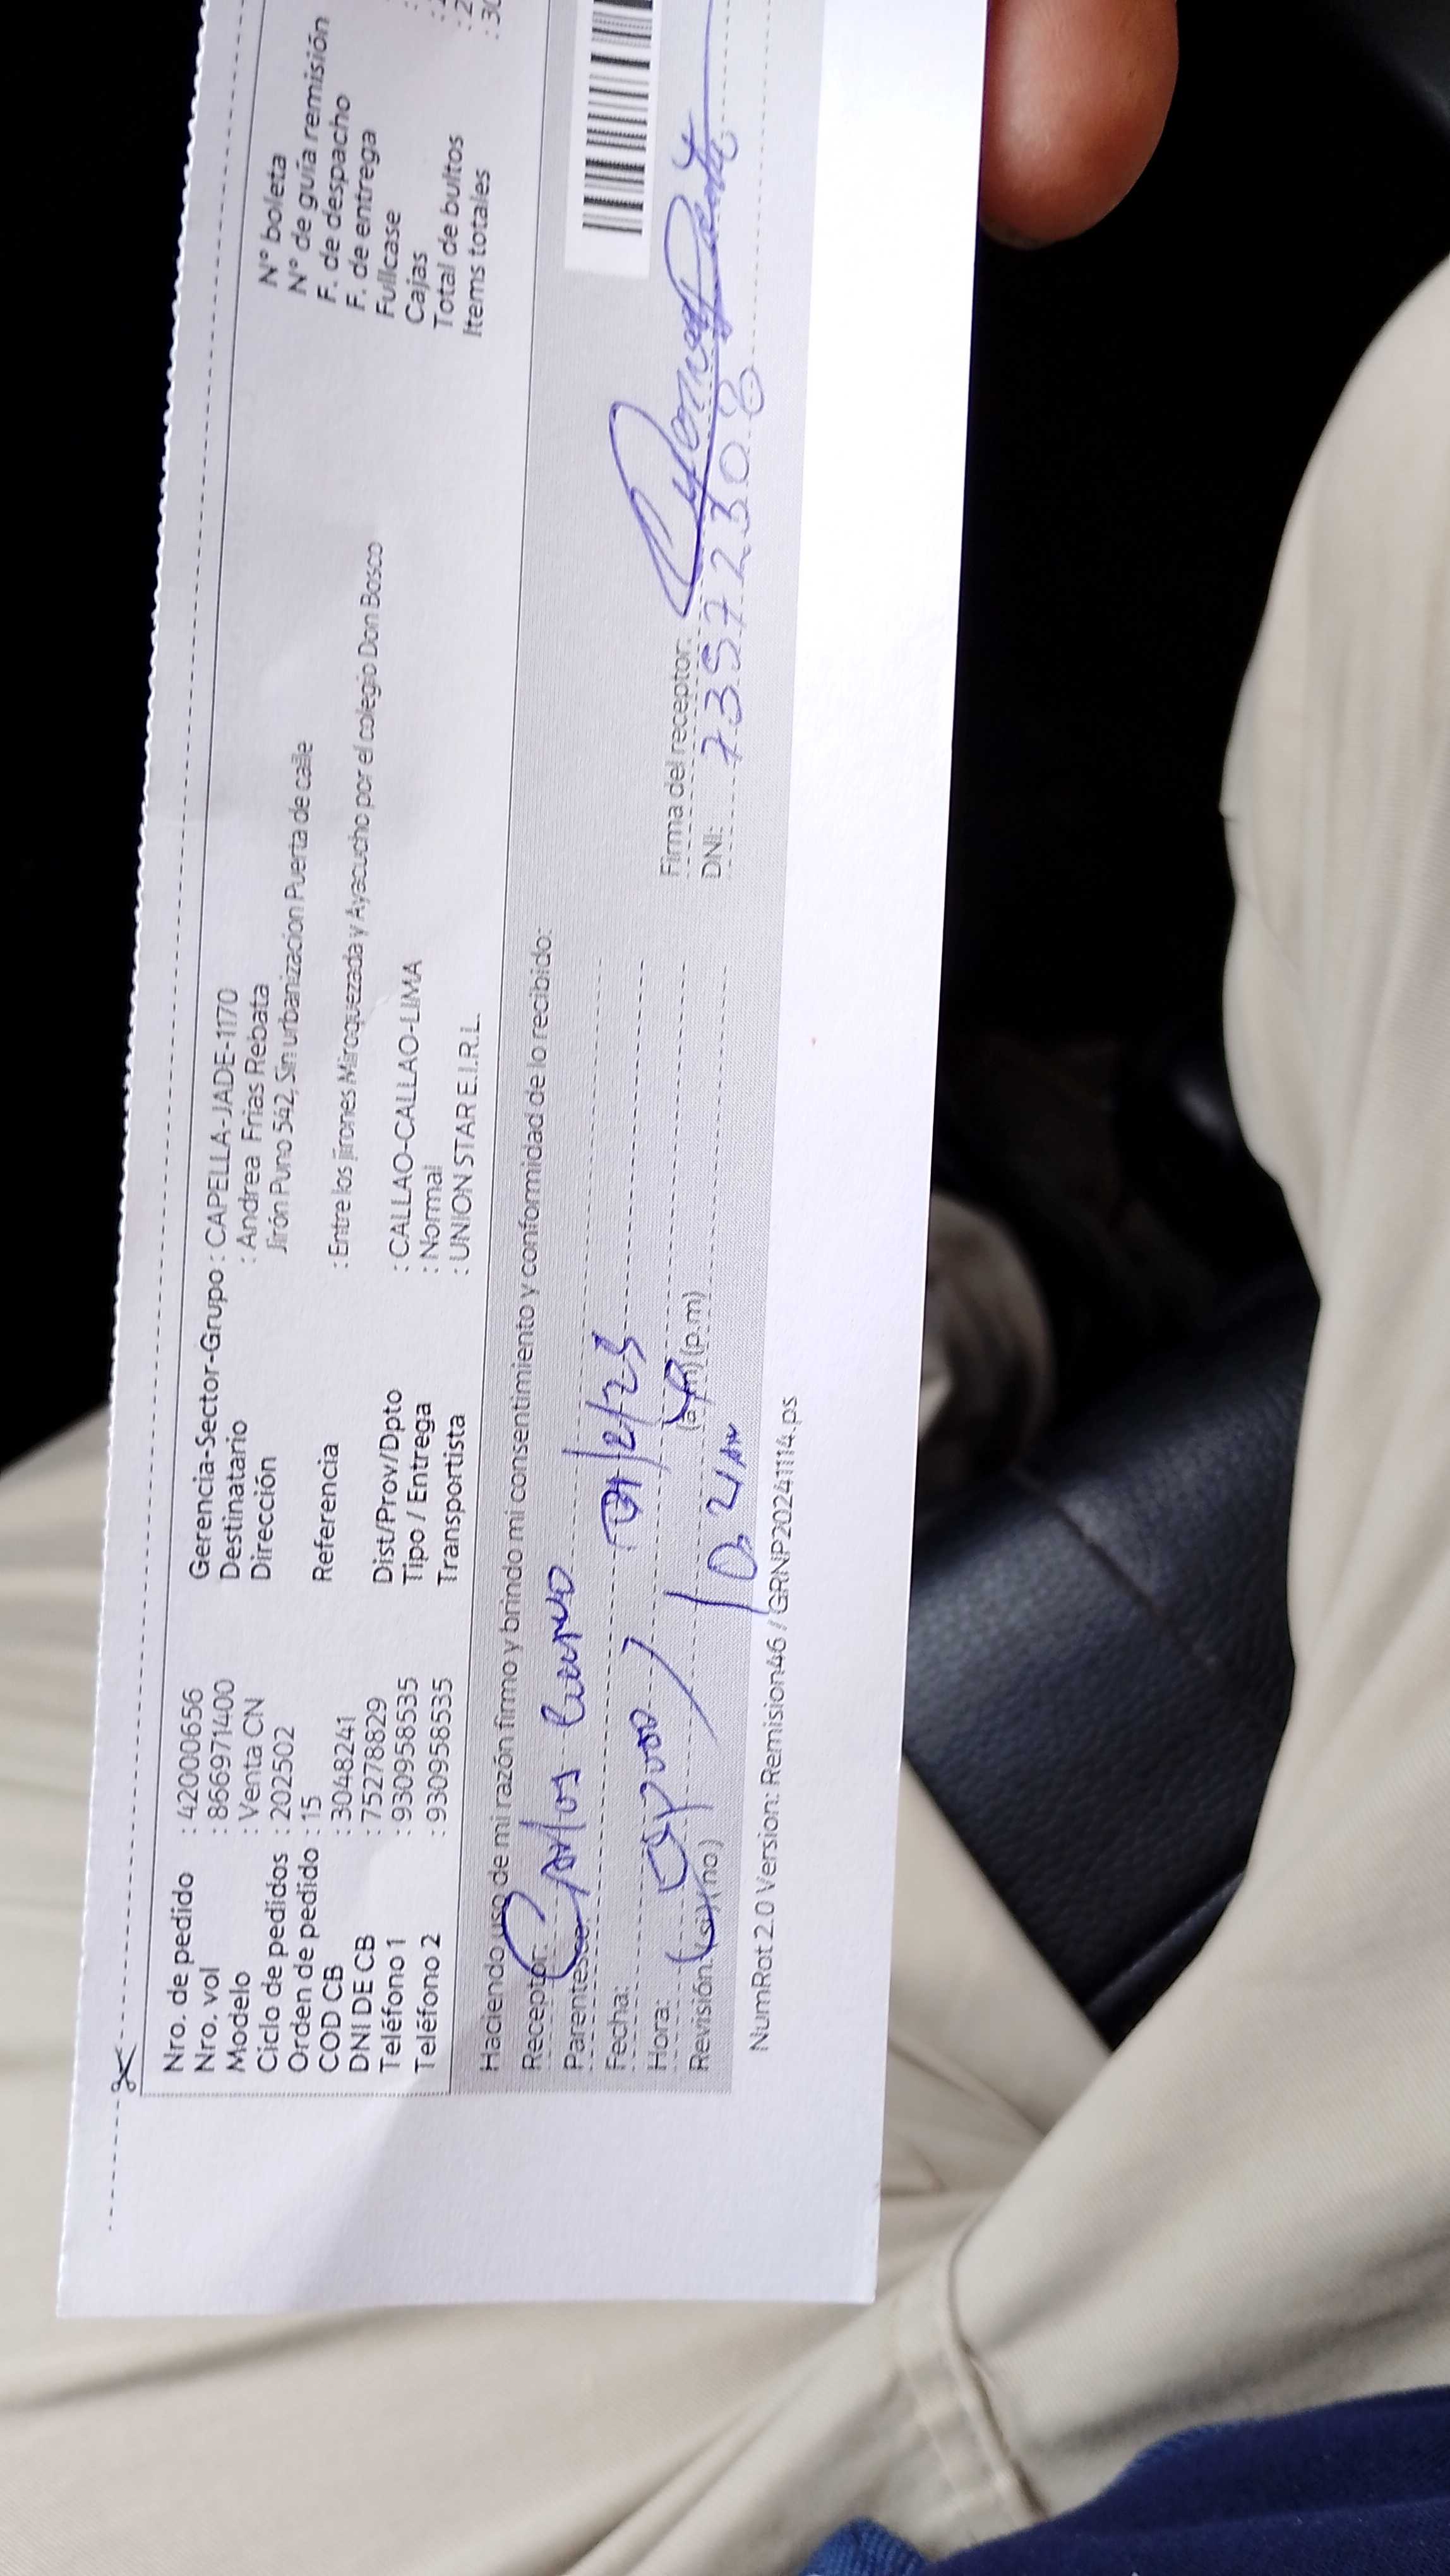 Nro. de pedido : 42000656
Nro. vol : 866971400
Modelo : Venta CN
Ciclo de pedidos : 202502
Orden de pedido : 15
COD CB : 3048241
DNI DE CB : 75278829
Teléfono 1 : 930958535
Teléfono 2 : 930958535
Gerencia-Sector-Grupo : CAPELLA-JADE-1170
Destinatario : Andrea Frias Rebata
Dirección Jirón Puno 542, Sin urbanizacion Puerta de calle
Referencia : Entre los jirones Miroquezada y Ayacucho por el colegio Don Bosco
Dist/Prov/Dpto : CALLAO-CALLAO-LIMA
Tipo / Entrega : Normal
Transportista : UNION STAR E.I.R.L.
N° boleta
N° de guía remisión
F. de despacho
F. de entrega
Fullcase
Cajas
Total de bultos
Items totales
Haciendo uso de mi razón firmo y brindo mi consentimiento y conformidad de lo recibido:
Receptor: Carlos
Parentesco:
Fecha:
Hora: (a.m) (p.m)
Revisión: (si) (no)
Firma del receptor:
DNI: 73572308
NumRot 2.0 Version: Remision46 / GRNP20241114.ps